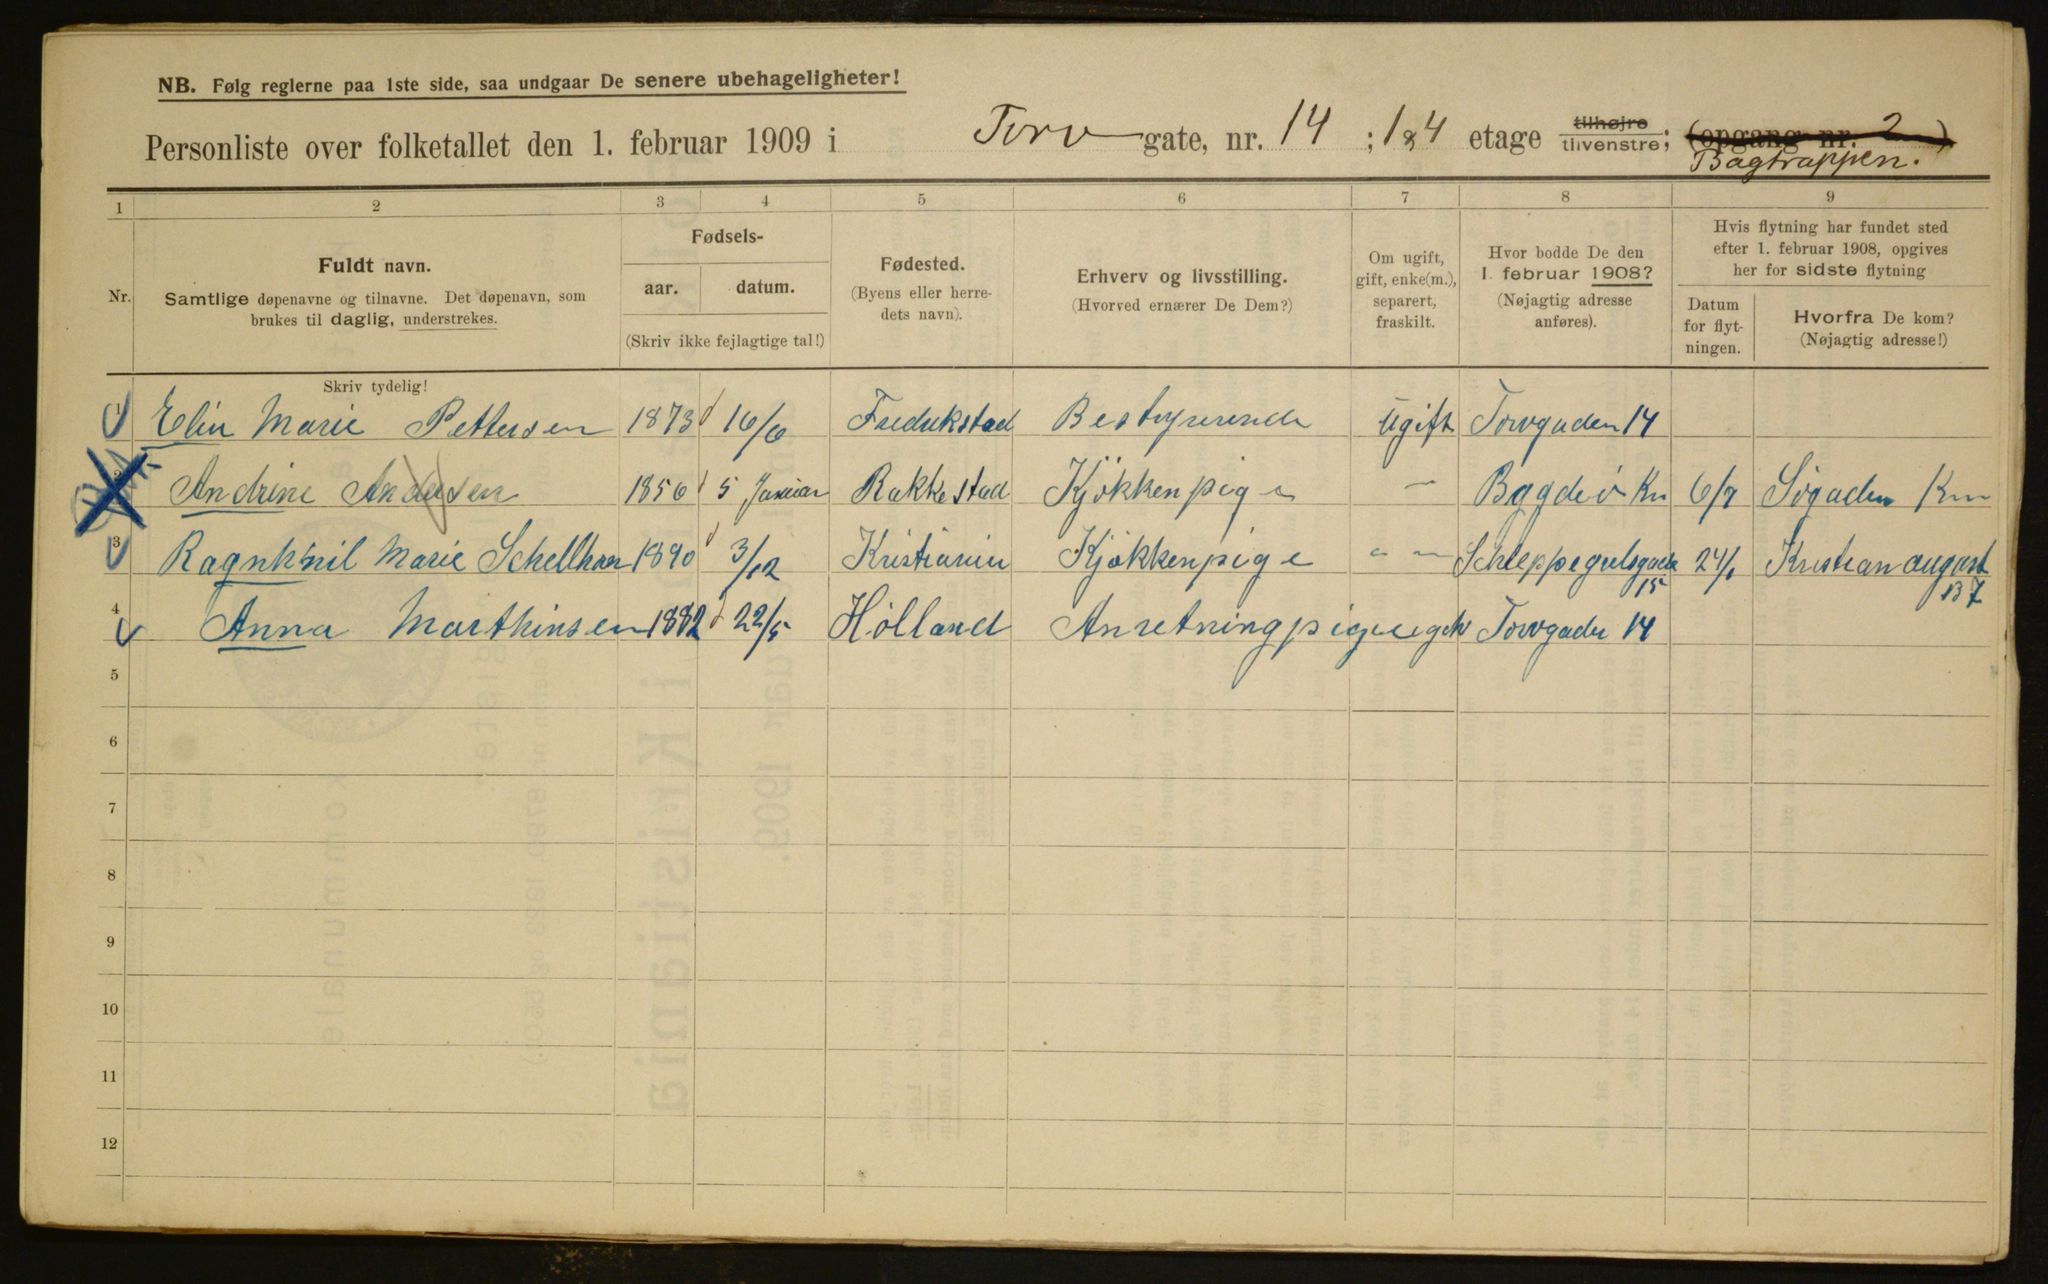 NB. Følg reglerne paa 1ste side, saa undgaar De senere ubehageligheter!
Personliste over folketallet den 1. februar 1909 i Torv gate, nr. 14 ; 1 & 4 etage tilhøjre tilvenstre; (opgang nr. 2)
Bagtrappen.
1 2 3 4 5 6 7 8 9
Nr.
Fuldt navn.
Samtlige døpenavne og tilnavne. Det døpenavn, som
brukes til daglig, understrekes.
Fødsels-
aar. datum.
(Skriv ikke fejlagtige tal!)
Fødested.
(Byens eller herre-
dets navn).
Erhverv og livsstilling.
(Hvorved ernærer De Dem?)
Om ugift,
gift, enke(m.),
separert,
fraskilt.
Hvor bodde De den
1. februar 1908?
(Nøjagtig adresse
anføres).
Hvis flytning har fundet sted
efter 1. februar 1908, opgives
her for sidste flytning
Datum
for flyt-
ningen.
Hvorfra De kom?
(Nøjagtig adresse!)
Skriv tydelig!
1 Elin Marie Pettersen 1873 16/6 Fredrikstad Bestyrerende ugift Torvgaden 14
2 Andrine Andersen 1856 5 Januar Rakkestad Kjökkenpige — Bygdö Kn 6/7 Sögaden
3 Ragnhil Marie 1890 3/12 Kristiania Kjökkenpige — Schleppegrelsgade 15 24/1 Kristian august 13
4 Anna Marthinsen 1882 22/5 Hölland Anretningpige Torvgade 14
5
6
7
8
9
10
11
12